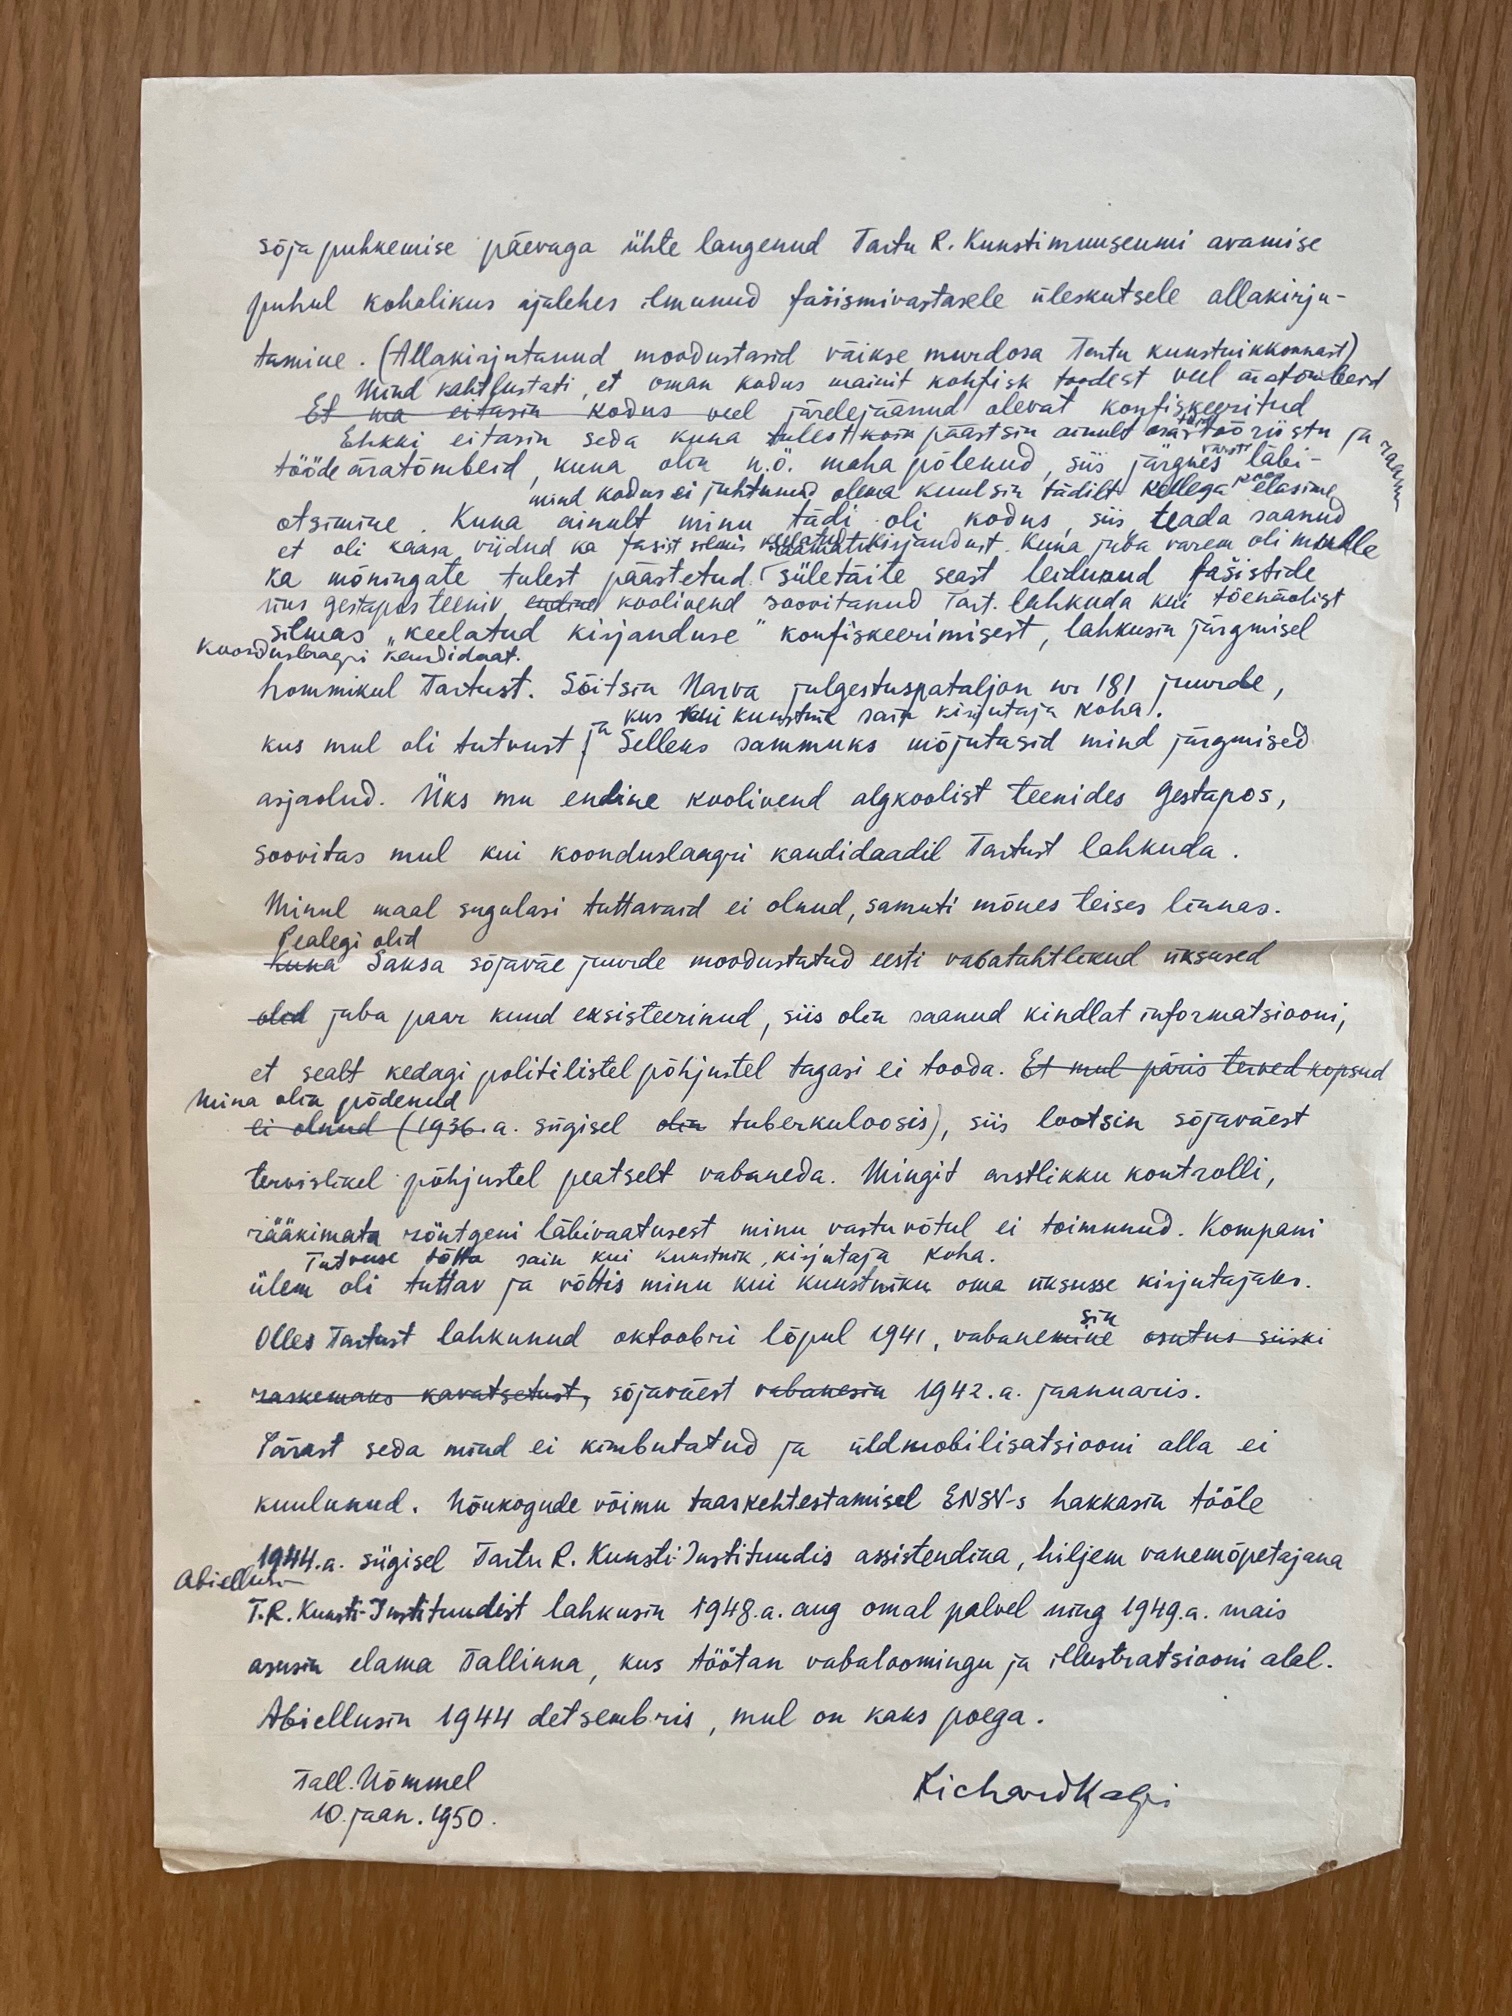 sõja puhkemise päevaga ühte langenud Tartu R. Kunstimuuseumi avamise
puhul kohalikus ajalehes ilmunud fašismivastasele üleskutsele allakirju-
tamine. (Allakirjutanud moodustasid väikse murdosa Tartu kunstnikkonnast)
Mind kahtlustati, et oman kodus mainit konfisk toodest veel äratõmbeid
Et ma eitasin kodus veel järelejäänud olevat konfiskeeritud
Ehkki eitasin seda kuna tulest päästsin ainult osa tööriistu ja raam
tööde äratõmbeid, kuna olin n.ö. maha põlenud, siis järgnes läbi-
mind kodus ei juhtunud olema kuulsin tädilt kellega elasime
otsimine. Kuna ainult minu tädi oli kodus, siis teada saanud
et oli kaasa viidud ka fašist silmis keelatud kirjandust. Kuna juba varem oli mulle
ka mõningate tulest päästetud sületäite seast leidunud fašistide
gestapos teeniv endine koolivend soovitanud Tart. lahkuda kui tõenäolist
silmas „keelatud kirjanduse" konfiskeerimisest, lahkusin järgmisel
koonduslaagri kandidaat.
hommikul Tartust. Sõitsin Narva julgestuspataljon nr 181 juurde,
kus kui kunstnik sain kirjutaja koha.
kus mul oli tutvust ja Selleks sammuks mõjutasid mind järgmised
asjaolud. Üks mu endine koolivend algkoolist teenides Gestapos,
soovitas mul kui koonduslaagri kandidaadil Tartust lahkuda.
Minul maal sugulasi tuttavaid ei olnud, samuti mõnes teises linnas.
Pealegi olid
Kuna Saksa sõjaväe juurde moodustatud eesti vabatahtlikud üksused
olid juba paar kuud eksisteerinud, siis olin saanud kindlat informatsiooni,
et sealt kedagi politilistel põhjustel tagasi ei tooda. Et mul päris terved kopsud
Mina olin põdenud
ei olnud (1936.a. sügisel olin tuberkuloosis), siis lootsin sõjaväest
tervislikel põhjustel peatselt vabaneda. Mingit arstlikku kontrolli,
rääkimata röntgeni läbivaatusest minu vastuvõtul ei toimunud. Kompani
Tutvuse tõttu sain kui kunstnik, kirjutaja koha.
ülem oli tuttav ja võttis minu kui kunstniku oma üksusse kirjutajaks.
sin
Olles Tartust lahkunud oktoobri lõpul 1941, vabanemine osutus siiski
raskemaks kavatsetust, sõjaväest vabanesin 1942.a. jaanuaris.
Pärast seda mind ei kimbutatud ja üldmobilisatsiooni alla ei
kuulunud. Nõukogude võimu taaskehtestamisel ENSV-s hakkasin tööle
1944.a. sügisel Tartu R. Kunsti-Instituudis assistendina, hiljem vanemõpetajana
Abiellusin
T.R. Kunsti-Instituudist lahkusin 1948.a. aug omal palvel ning 1949.a. mais
asusin elama Tallinna, kus töötan vabaloomingu ja illustratsiooni alal.
Abiellusin 1944 detsembris, mul on kaks poega.
Tall. Nõmmel
10. jaan. 1950.
Richard Kaljo